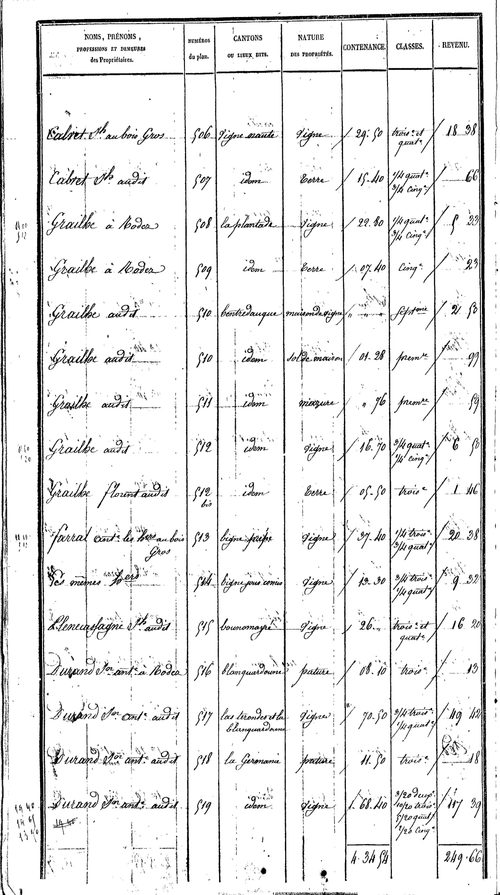 NOMS, PRÉNOMS, PROFESSIONS ET DEMEURES des Propriétaires. NUMÉROS du plan. CANTONS OU LIEUX DITS. NATURE DES PROPRIÉTÉS. CONTENANCE. CLASSES. REVENU.
Cabret au bois Gros 506 vigne haute vigne 29.50 trois.e et quat.e 18 38
Cabret audit 507 idem terre 15.40 1/4 quat.e 3/4 cinq.e 66
Grailhe à Rodez 508 la plantade vigne 22.80 1/4 quat.e 3/4 cinq.e 5 23
Grailhe à Rodez 509 idem terre 07.40 cinq.e 23
Grailhe audit 510 maison de vigne " " " sept.me 21 50
Grailhe audit 510 idem sol de maison 01.28 prem.re 99
Grailhe audit 511 idem mazure " 76 prem.re 59
Grailhe audit 512 idem vigne 16.70 3/4 quat.e 1/4 cinq.e 6 50
Grailhe florent audit 512 bis idem terre 05.50 trois.e 1 46
Farral ant.e les h.ers au bois Gros 513 vigne 37.40 1/4 trois.e 3/4 quat.e 20 38
les mêmes h.ers 514 vigne 13.30 3/4 trois.e 1/4 quat.e 9 32
audit 515 bounomayre vigne 26 „ trois.e et quat.e 16 20
Durand ant.e à Rodez 516 blanquardaune pature 08.10 trois.e 13
Durand ant.e audit 517 las trondes et la blanquardaune vigne 70.50 3/4 trois.e 1/4 quat.e 49 42
Durand ant.e audit 518 la Germania pature 11.50 trois.e 18
Durand ant.e audit 519 idem vigne 1.68.40 3/20 deux.e 10/20 trois.e 5/20 quat.e 2/20 cinq.e 117 39
4.34 54 249.66